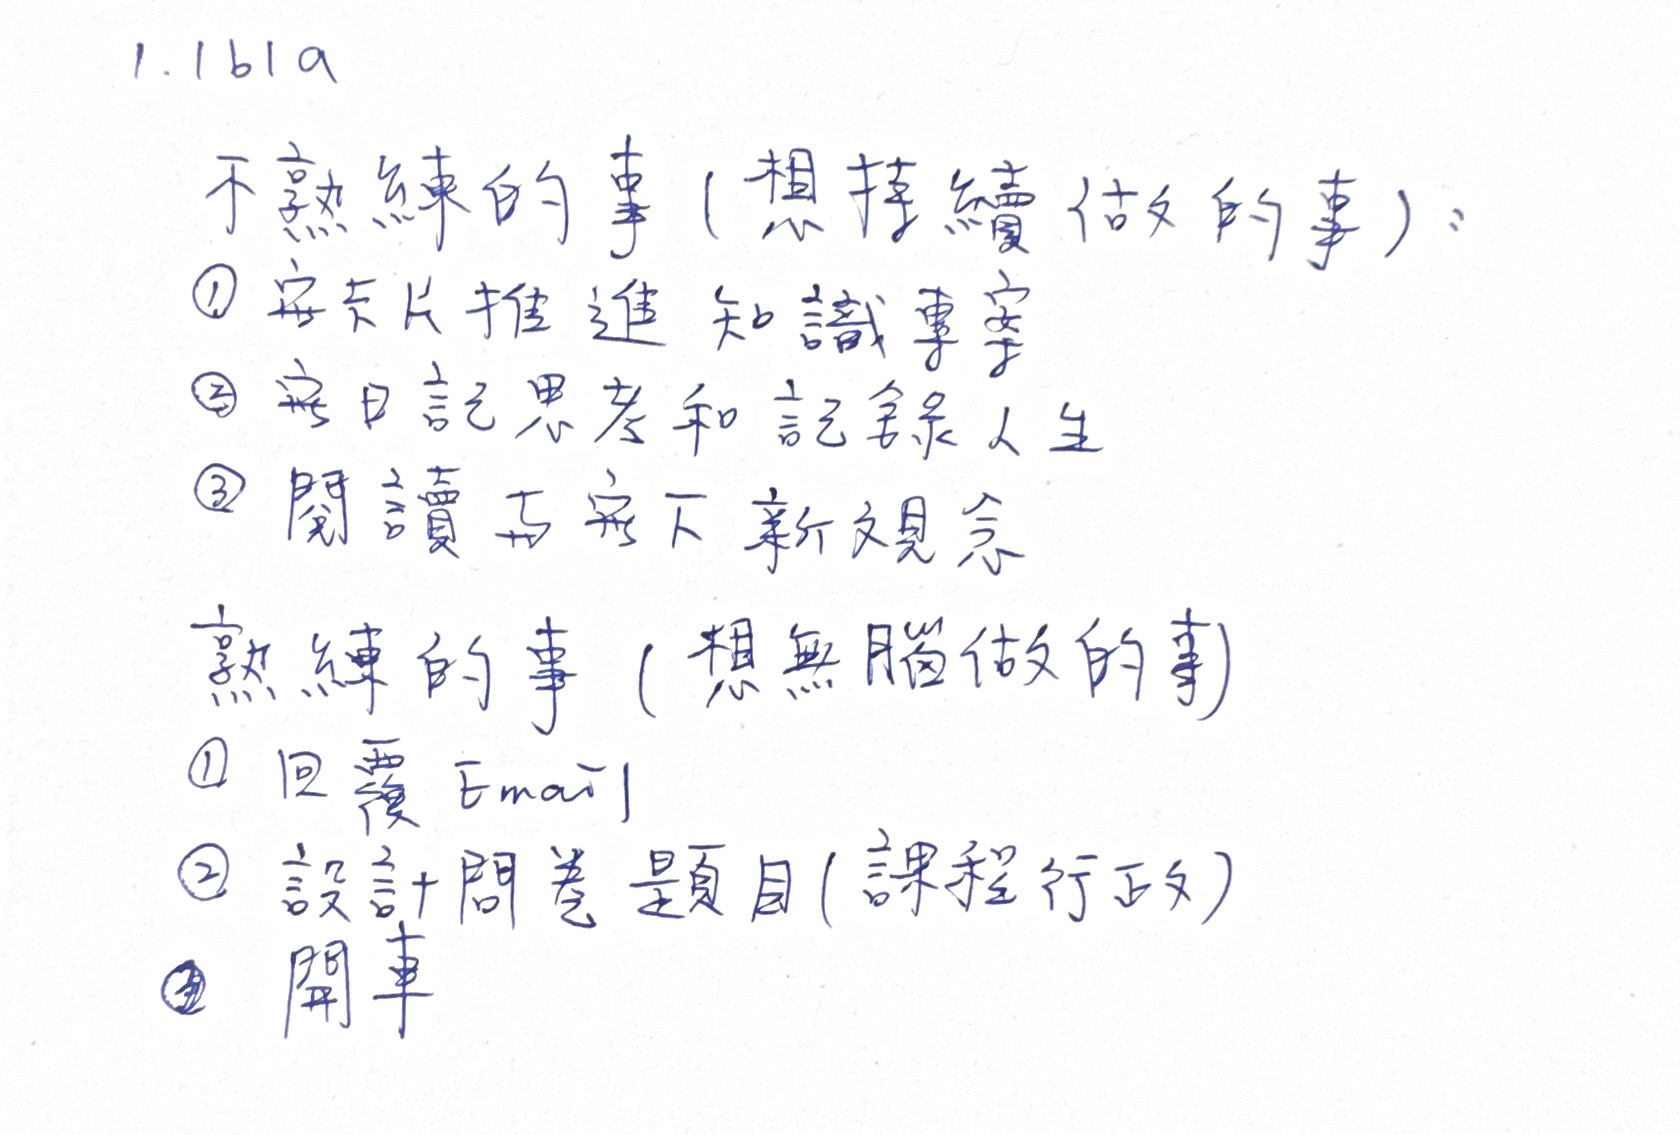 1.1b1a
不熟練的事(想持續做的事):
① 寫卡片推進知識專案
② 寫日記思考和記錄人生
③ 閱讀與寫下新觀念
熟練的事(想無腦做的事)
① 回覆Email
② 設計問卷題目(課程行政)
③ 開車